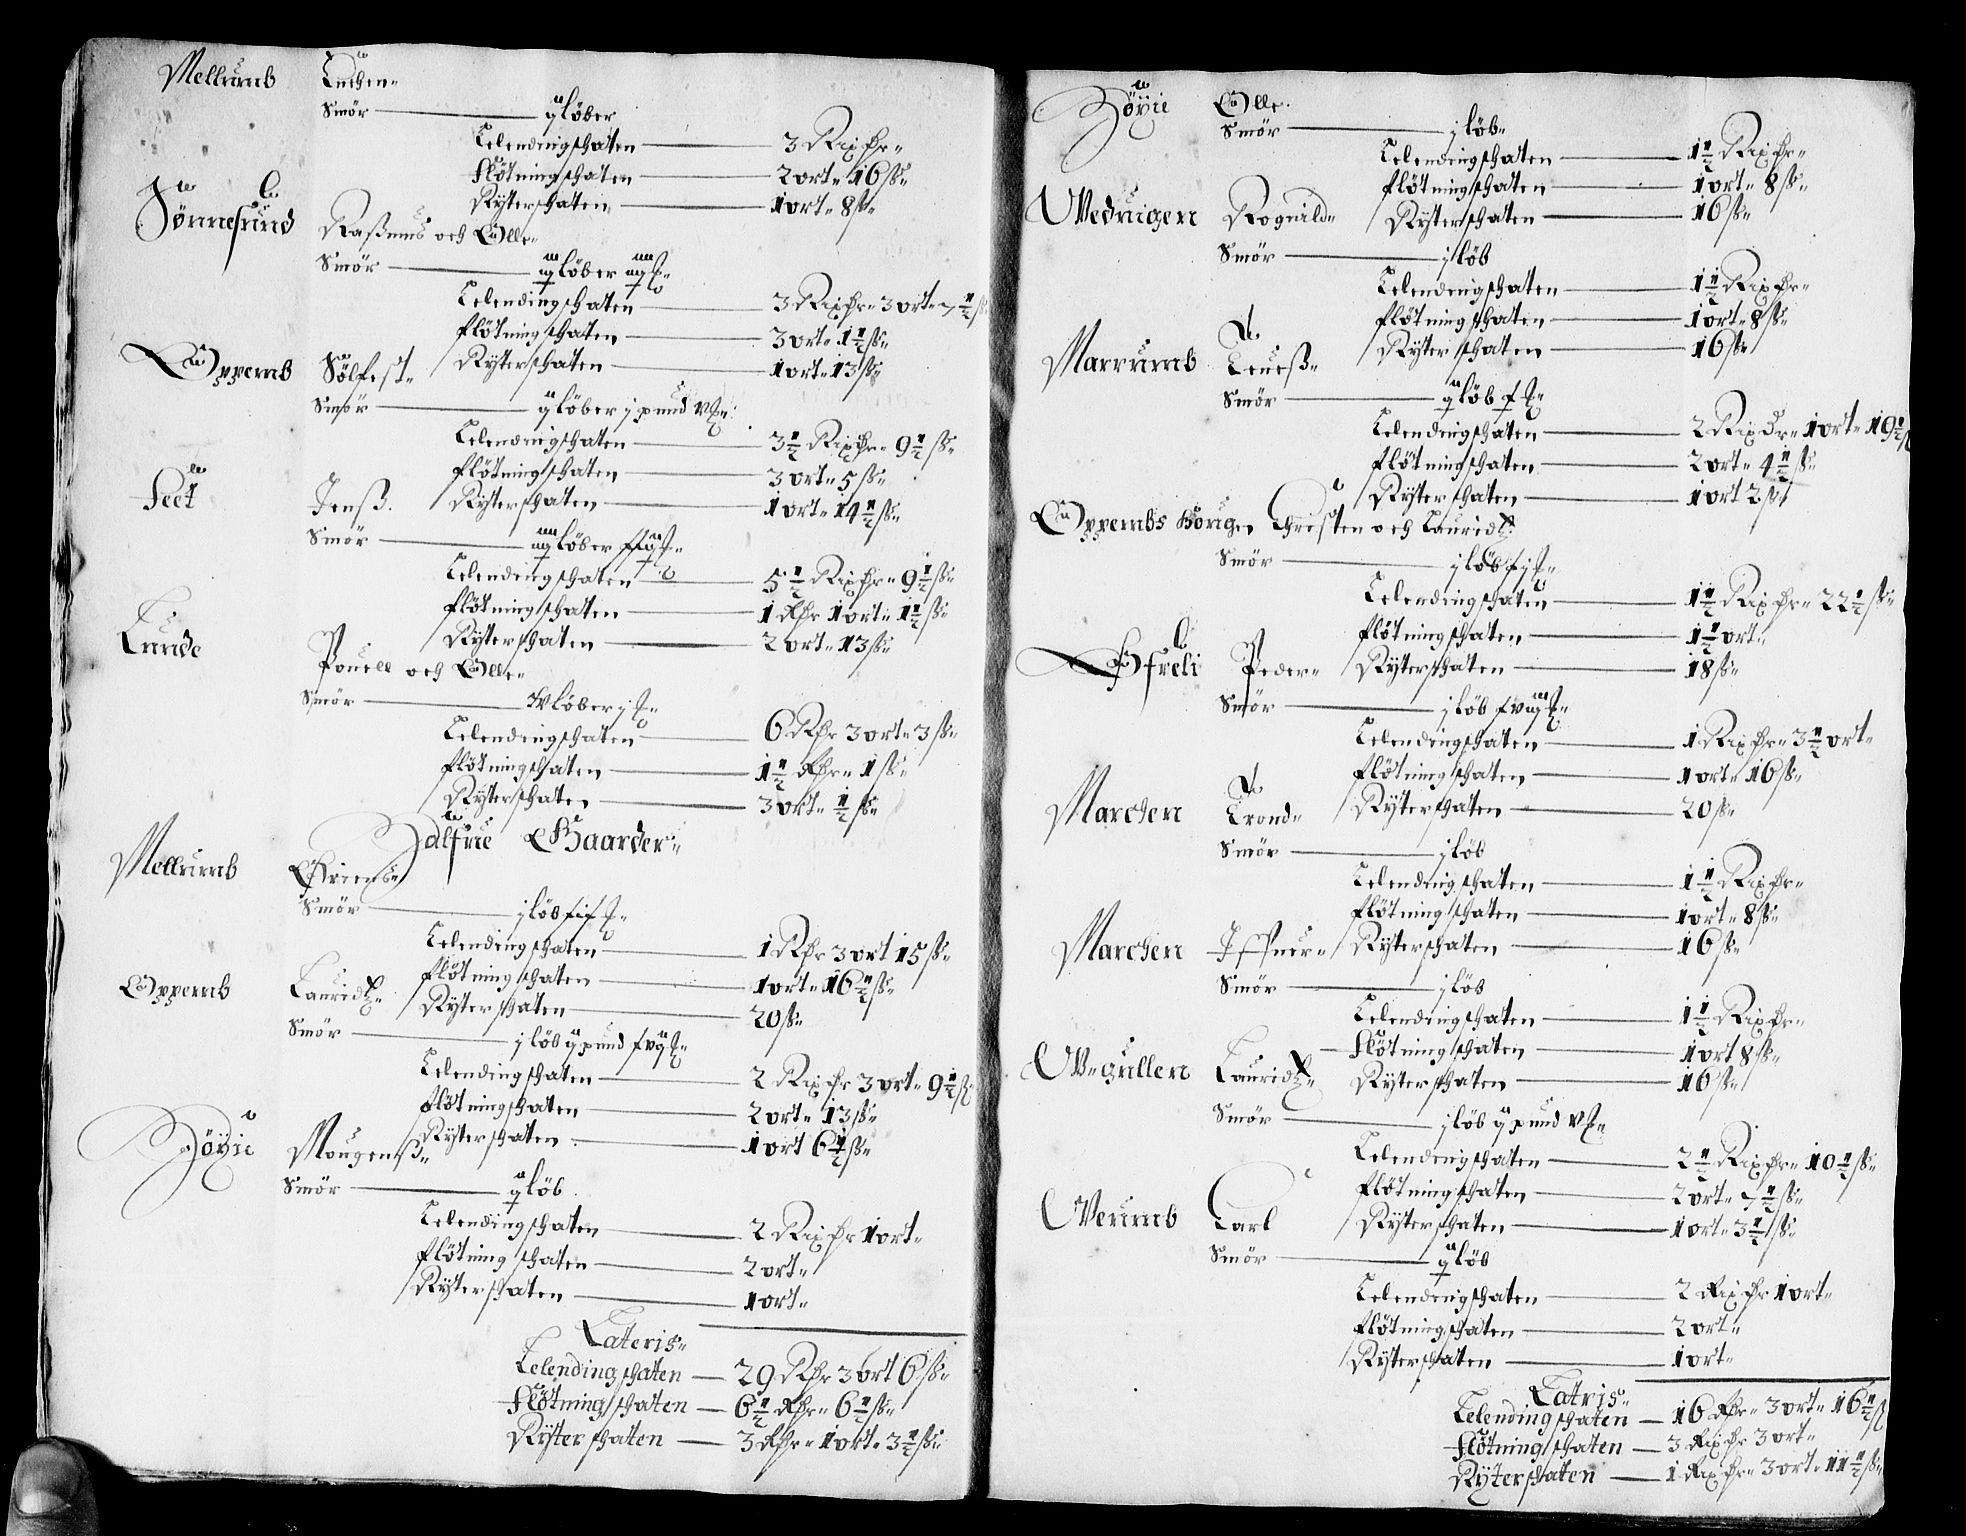 Mellumb Luchen
Smör ij löber
Lelendingschaten 3 Rix dr
flötningschaten 2 ort 16 ß
Ryterschaten 1 ort 8 ß
Sönnesund Raßmus och Olle
Smör
Lelendingschaten 3 Rix dr 3 ort 7½ ß
flötningschaten 3 ort 1½ ß
Ryterschaten 1 ort 13 ß
Oppemb Sölfest
Smör ij löber j pund v
Lelendingschaten 3½ Rix dr 9½ ß
flötningschaten 3 ort 5 ß
Ryterschaten 1 ort 14½ ß
Seet Jenß
Smör
Lelendingschaten 5½ Rix dr 9½ ß
flötningschaten 1 Rdr 1 ort 1½ ß
Ryterschaten 2 ort 13 ß
Lunde Pouell och Olle
Smör löber j
Lelendingschaten 6 Rdr 3 ort 3 ß
flötningschaten 1½ Rdr 1 ß
Ryterschaten 3 ort ½ ß
Halfue Gaarder
Mellumb
Smör j löb
Lelendingschaten 1 Rdr 3 ort 15 ß
flötningschaten 1 ort 16½ ß
Ryterschaten 20 ß
Oppemb Lauridtz
Smör j löb ij pund
Lelendingschaten 2 Rix dr 3 ort 9½ ß
flötningschaten 2 ort 13 ß
Ryterschaten 1 ort 6½ ß
Höyie Mougenß
Smör ij löb
Lelendingschaten 2 Rix dr 1 ort
flötningschaten 2 ort
Ryterschaten 1 ort
Lateris
Lelendingschaten 29 Rdr 3 ort 6 ß
flötningschaten 6½ Rdr 6½ ß
Ryterschaten 3 Rdr 1 ort 3½ ß
Höyie Olle
Smör j löb
Lelendingschaten 1½ Rix dr
flötningschaten 1 ort 8 ß
Ryterschaten 16 ß
Wednigen Rognild
Smör j löb
Lelendingschaten 1½ Rix dr
flötningschaten 1 ort 8 ß
Ryterschaten 16 ß
Marrumb
Smör ij löb
Lelendingschaten 2 Rix dr 1 ort 19½ ß
flötningschaten 2 ort 4½ ß
Ryterschaten 1 ort 2 ß
Oppembs Houg Christen och Lauridtz
Smör j löb
Lelendingschaten 1½ Rix dr 22½ ß
flötningschaten 1½ ort
Ryterschaten 18 ß
Öfreli Peder
Smör j löb
Lelendingschaten 1 Rix dr 3½ ort
flötningschaten 1 ort 16 ß
Ryterschaten 20 ß
Marchen Trond
Smör j löb
Lelendingschaten 1½ Rix dr
flötningschaten 1 ort 8 ß
Ryterschaten 16 ß
Marchen
Smör j löb
Lelendingschaten 1½ Rix dr
flötningschaten 1 ort 8 ß
Ryterschaten 16 ß
Lauridtz
Smör j löb ij pund v
Lelendingschaten 2½ Rix dr 10½ ß
flötningschaten 2 ort 7½ ß
Ryterschaten 1 ort 3½ ß
Werumb Carl
Smör ij löb
Lelendingschaten 2 Rix dr 1 ort
flötningschaten 2 ort
Ryterschaten 1 ort
Latris
Lelendingschaten 16 Rdr 3 ort 16½ ß
flötningschaten 3 Rix dr 3 ort
Ryterschaten 1 Rix dr 3 ort 11½ ß